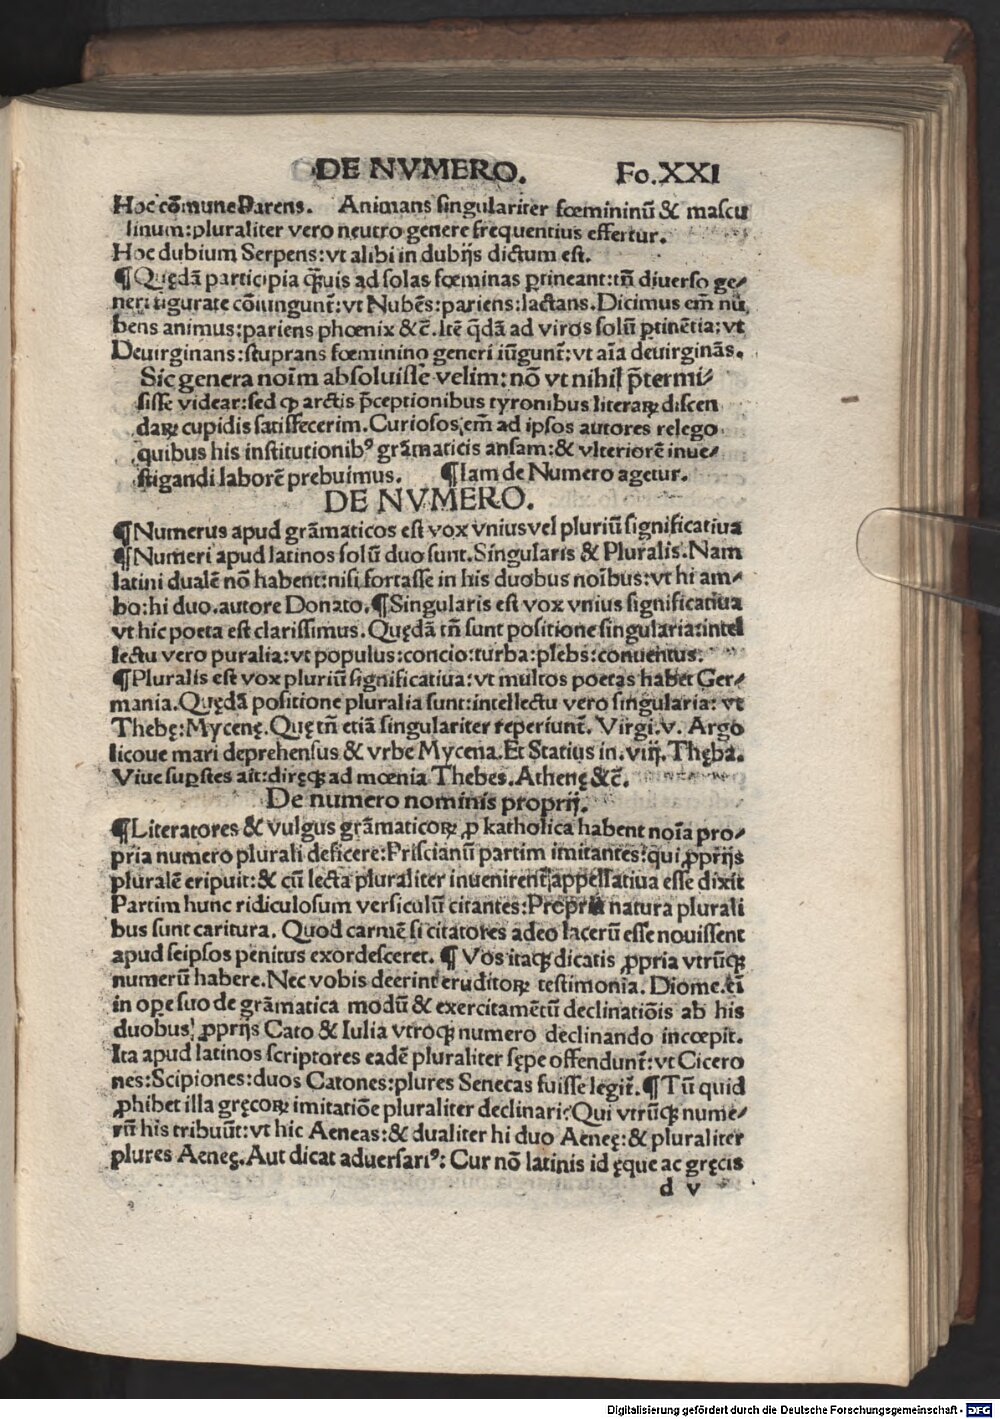 DE NVMERO. Fo.XXI
Hoc cõmune Parens. Animans singulariter fœmininũ & mascu
linum:pluraliter vero neutro genere frequentius effertur.
Hoc dubium Serpens:vt alibi in dubijs dictum est.
¶Quędã participia ꝗ̃uis ad solas fœminas ꝑtineant:tñ diuerso ge⸗
neri figurate cõiungunt̃:vt Nubẽs:pariens:lactans.Dicimus em̃ nu
bens animus:pariens phœnix &c̃.Itẽ q̃dã ad viros solũ ꝑtinẽtia:vt
Deuirginans:stuprans fœminino generi iũgunt̃:vt aĩa deuirginãs.
Sic genera noĩm absoluisse velim:nõ vt nihil p̃termi⸗
sisse videar:sed ꝙ arctis p̃ceptionibus tyronibus literaꝝ discen
daꝝ cupidis satisfecerim.Curiosos em̃ ad ipsos autores relego
quibus his institutionibꝰ grãmaticis ansam:& vlteriorẽ inue⸗
stigandi laborẽ prebuimus. ¶Iam de Numero agetur.
DE NVMERO.
¶Numerus apud grãmaticos est vox vnius vel pluriũ significatiua
¶Numeri apud latinos solũ duo sunt.Singularis & Pluralis.Nam
latini dualẽ nõ habent:nisi fortasse in his duobus noĩbus:vt hi am⸗
bo:hi duo.autore Donato.¶Singularis est vox vnius significatiua
vt hic poeta est clarissimus.Quędã tñ sunt positione singularia:intel
lectu vero puralia:vt populus:concio:turba:plebs:conuentus.
¶Pluralis est vox pluriũ significatiua:vt multos poetas habet Ger⸗
mania.Quędã positione pluralia sunt:intellectu vero singularia: vt
Thebę:Mycenę.Quę tñ etiã singulariter reperiunt̃. Virgi.v. Argo
licoue mari deprehensus & vrbe Mycena.Et Statius in.viij.Thęba.
Viue suꝑstes ait:diręqꝫ ad mœnia Thebes.Athenę &c̃.
De numero nominis proprij.
¶Literatores & vulgus grãmaticoꝝ ꝓ katholica habent noĩa pro⸗
pria numero plurali deficere:Priscianũ partim imitantes:qui ꝓprijs
pluralẽ eripuit:& cũ lecta pluraliter inuenirent̃ appellatiua esse dixit
Partim hunc ridiculosum versiculũ citantes:Propria natura plurali
bus sunt caritura. Quod carmẽ si citatores adeo lacerũ esse nouissent
apud seipsos penitus exordesceret. ¶ Vos itaqꝫ dicatis ꝓpria vtrũqꝫ
numerũ habere.Nec vobis deerint eruditoꝝ testimonia. Diome.ti
in ope suo de grãmatica modũ & exercitamẽtũ declinatiõis ab his
duobus ꝓprijs Cato & Iulia vtroqꝫ numero declinando incœpit.
Ita apud latinos scriptores eadẽ pluraliter sępe offendunt̃:vt Cicero
nes:Scipiones:duos Catones:plures Senecas fuisse legit̃.¶Tũ quid
ꝓhibet illa gręcoꝝ imitatiõe pluraliter declinari?Qui vtrũqꝫ nume⸗
rũ his tribuũt:vt hic Aeneas:& dualiter hi duo Aeneę:& pluraliter
plures Aeneę.Aut dicat aduersariꝰ: Cur nõ latinis id ęque ac gręcis
d v
Digitalisierung gefördert durch die Deutsche Forschungsgemeinschaft - DFG